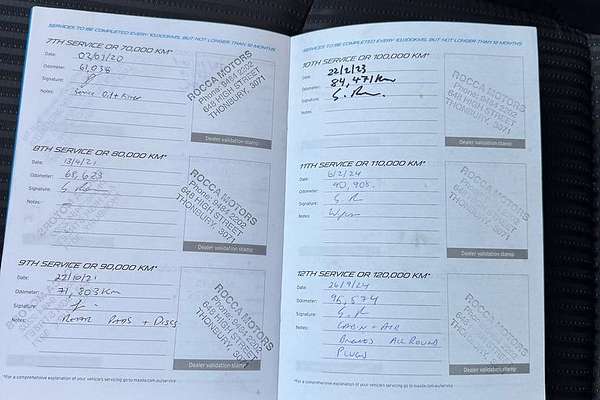 SERVICES TO BE COMPLETED EVERY 10,000KMS, BUT NOT LONGER THAN 12 MONTHS
7TH SERVICE OR 70,000 KM*
Date: 03/03/20
Odometer: 61,038
Signature:
Notes: Service Oil + Filter
ROCCA MOTORS
Phone: 9484 2202
648 HIGH STREET
THONBURY, 3071
Dealer validation stamp
8TH SERVICE OR 80,000 KM*
Date: 13/4/21
Odometer: 68,623
Signature:
Notes:
ROCCA MOTORS
Phone: 9484 2202
648 HIGH STREET
THONBURY, 3071
Dealer validation stamp
9TH SERVICE OR 90,000 KM*
Date: 22/10/21
Odometer: 71,803 Km
Signature:
Notes: REAR PADS + DISCS
ROCCA MOTORS
Phone: 9484 2202
648 HIGH STREET
THONBURY, 3071
Dealer validation stamp
*For a comprehensive explanation of your vehicle's servicing go to mazda.com.au/service
SERVICES TO BE COMPLETED EVERY 10,000KMS, BUT NOT LONGER THAN 12 MONTHS
10TH SERVICE OR 100,000 KM*
Date: 22/2/23
Odometer: 84,471 Km
Signature:
Notes:
ROCCA MOTORS
Phone: 9484 2202
648 HIGH STREET
THONBURY, 3071
Dealer validation stamp
11TH SERVICE OR 110,000 KM*
Date: 6/2/24
Odometer: 90,905
Signature:
Notes:
ROCCA MOTORS
Dealer validation stamp
12TH SERVICE OR 120,000 KM*
Date: 26/9/24
Odometer: 96,574
Signature:
Notes: CABIN + AIR
BRAKES ALL ROUND
PLUGS
ROCCA MOTORS
Dealer validation stamp
*For a comprehensive explanation of your vehicle's servicing go to mazda.com.au/service